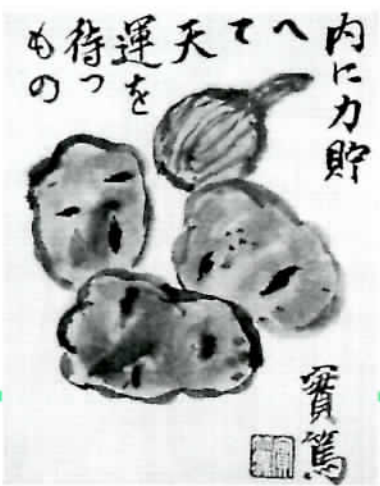 内に力貯
へ
て
天
運を
待つ
もの
實篤